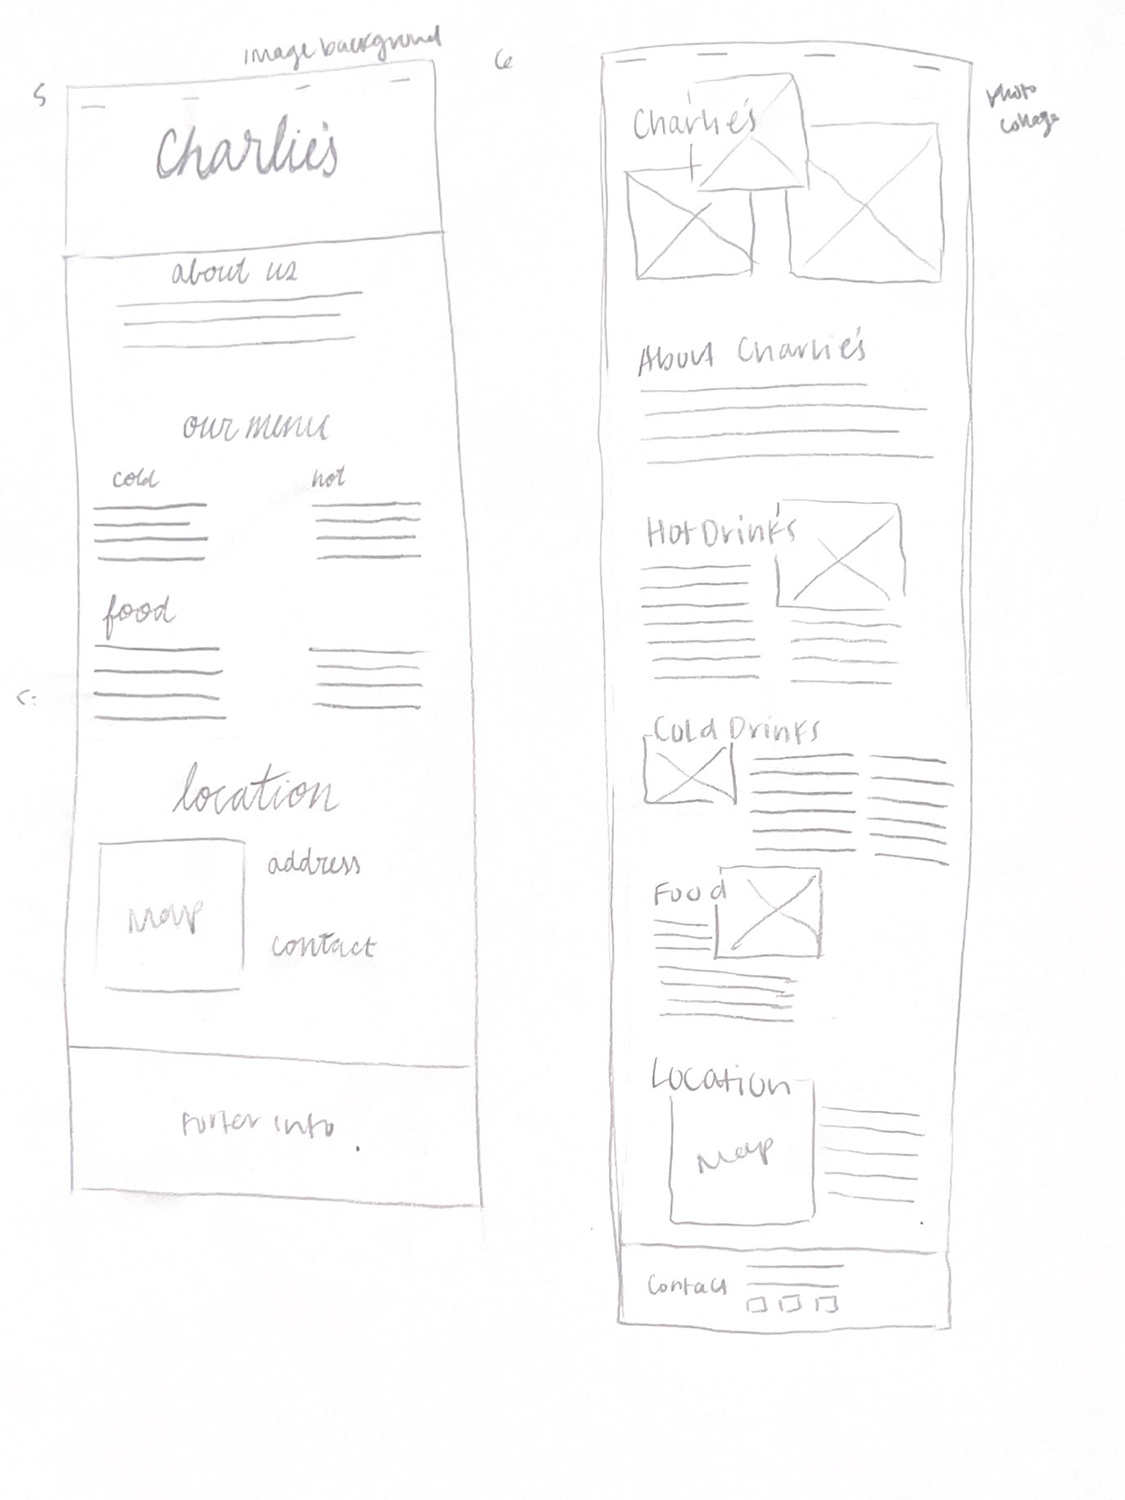 image background
5
Charlie's
about us
our menu
cold
hot
food
location
Map
address
contact
Footer info
6
photo
collage
Charlie's
About Charlie's
Hot Drinks
Cold Drinks
Food
Location
Map
Contact